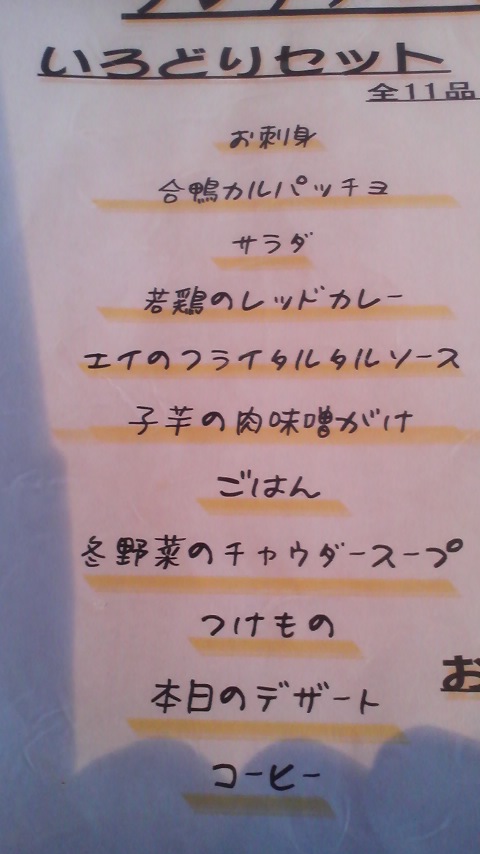 いろどりセット
全11品
お刺身
合鴨カルパッチョ
サラダ
若鶏のレッドカレー
エイのフライタルタルソース
子芋の肉味噌がけ
ごはん
冬野菜のチャウダースープ
つけもの
お
本日のデザート
コーヒー